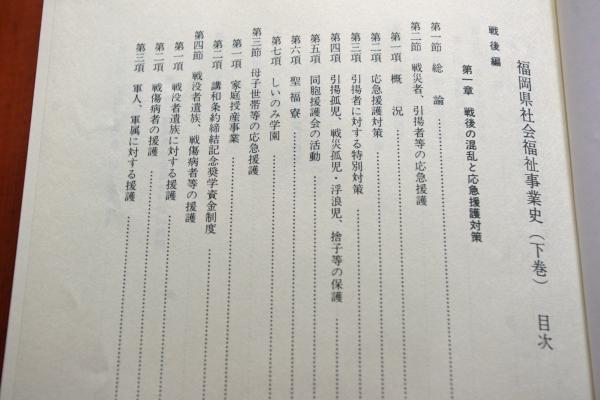 福岡県社会福祉事業史（下巻）　目次
戦後編
第一章　戦後の混乱と応急援護対策
第一節　総　論
第二節　戦災者、引揚者等の応急援護
第一項　概　況
第二項　応急援護対策
第三項　引揚者に対する特別対策
第四項　引揚孤児、戦災孤児・浮浪児、捨子等の保護
第五項　同胞援護会の活動
第六項　聖福寮
第七項　しいのみ学園
第三節　母子世帯等の応急援護
第一項　家庭授産事業
第二項　講和条約締結記念奨学資金制度
第四節　戦没者遺族、戦傷病者等の援護
第一項　戦没者遺族に対する援護
第二項　戦傷病者の援護
第三項　軍人、軍属に対する援護